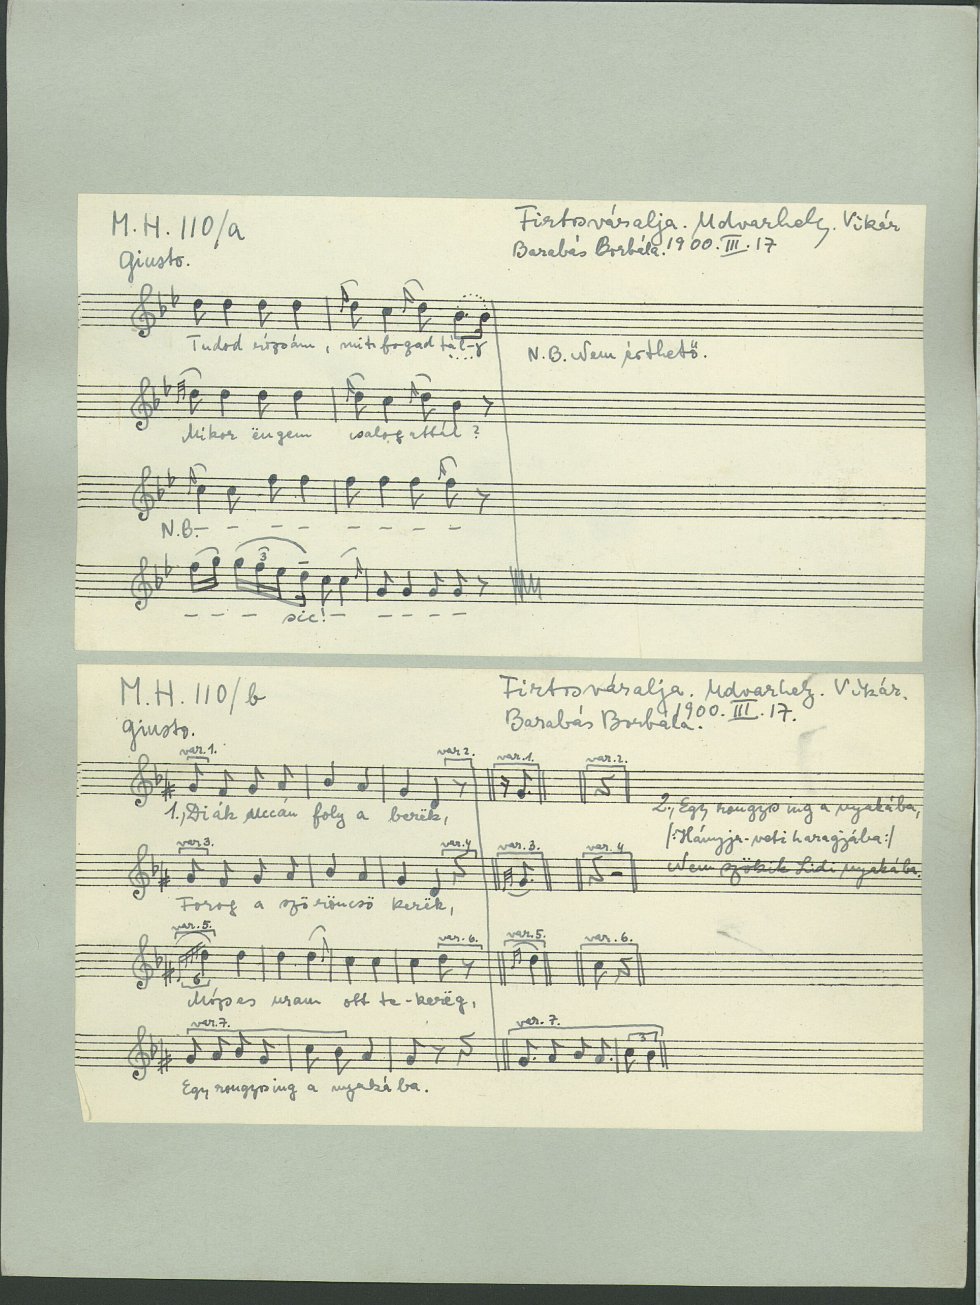 M.H. 110/a
Firtosváralja. Udvarhely. Vikár
Barabás Borbála. 1900. III. 17
Giusto.
Tudod rózsám, mit fogadtál-
N.B. Nem érthető.
Mikor ëngem csalogattál?
N.B.
3
sic!
M.H. 110/b
Firtosváralja. Udvarhely. Vikár.
Barabás Borbála. 1900. III. 17.
Giusto.
var.1. var 2. var.1. var.2.
1., Diák uccán foly a berëk,
2., Egy rongyos ing a nyakába,
/:Hányja-veti haragjába:/
Nem szökik Lidi nyakába.
var3. var.4 var.3. var.4
Forog a szöröncső kerëk,
var.5. var.6. var.5. var.6.
6
Mózses uram ott te-kerëg,
var.7. var.7.
3
Egy rongyos ing a nyakába.